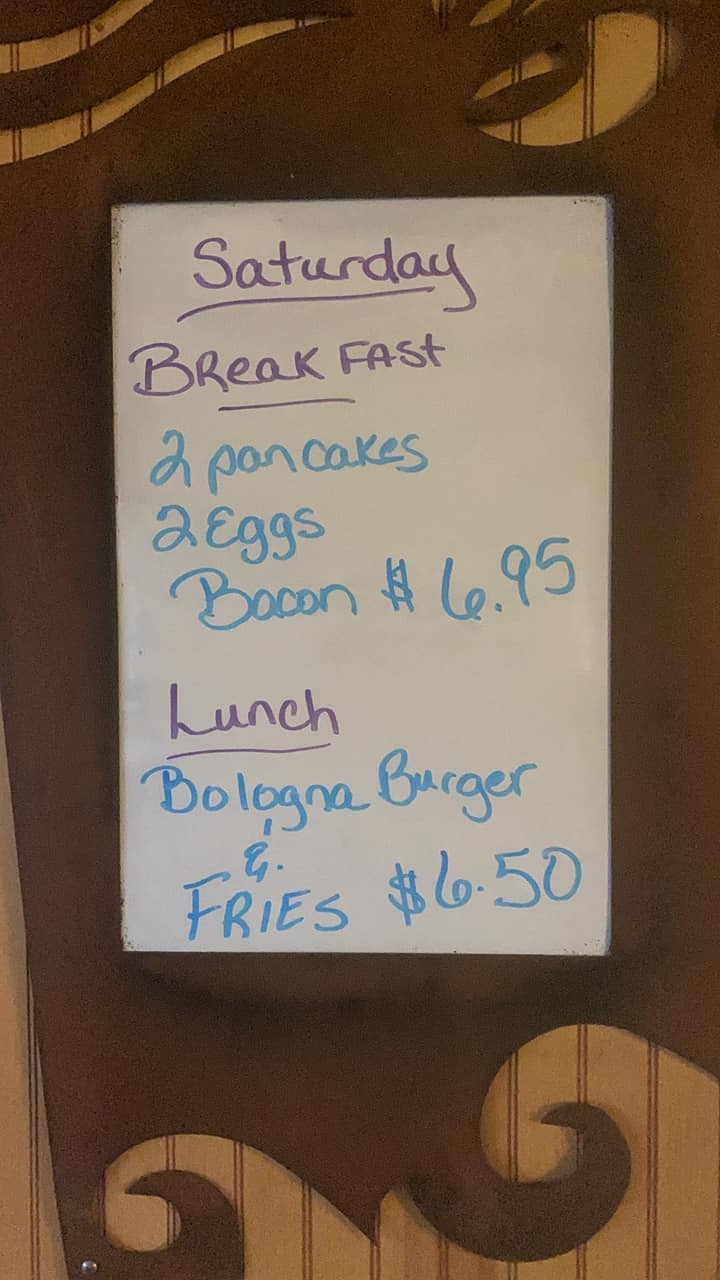 Saturday
BReaK FASt
2 pancakes
2 Eggs
Bacon $ 6.95
Lunch
Bologna Burger
&
FRIES $6.50